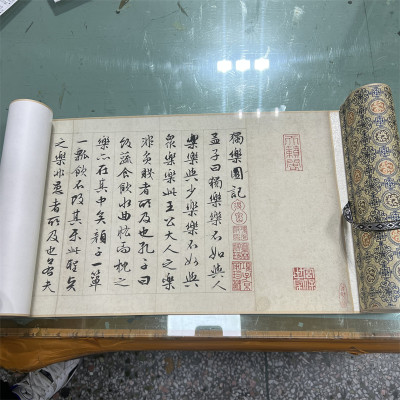 獨樂園記
孟子曰獨樂樂不如與人
樂樂與少樂樂不如與
衆樂樂此王公大人之樂
非貧賤者所及也孔子曰
飯蔬食飲水曲肱而枕之
樂亦在其中矣顏子一簞
一瓢飲不改其樂此聖賢
之樂非愚者所及也若夫